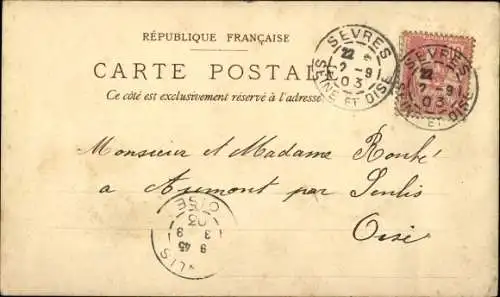 RÉPUBLIQUE FRANÇAISE
CARTE POSTALE
Ce côté est exclusivement réservé à l'adresse
SEVRES
22
7-9
03
SEINE ET OISE
SEVRES
22
7-9
03
SEINE ET OISE
Monsieur et Madame
a Aumont par Senlis
Oise
OISE
03
9 45
NLIS